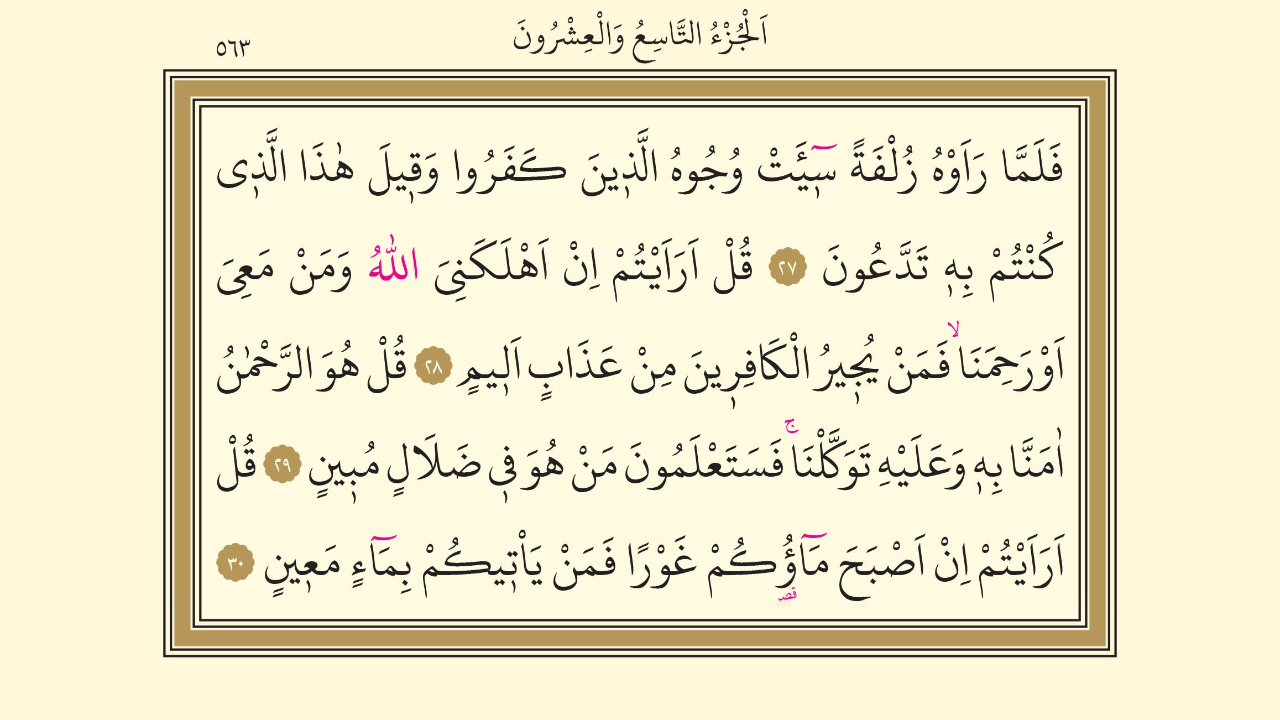 اَلْجُزْءُ التَّاسِعُ وَالْعِشْرُونَ
٥٦٣
فَلَمَّا رَاَوْهُ زُلْفَةً سٖٓيـَٔتْ وُجُوهُ الَّذٖينَ كَفَرُوا وَقٖيلَ هٰذَا الَّذٖى
كُنْتُمْ بِهٖ تَدَّعُونَ ﴿٢٧﴾ قُلْ اَرَاَيْتُمْ اِنْ اَهْلَكَنِىَ اللّٰهُ وَمَنْ مَعِىَ
اَوْ رَحِمَنَاۙ فَمَنْ يُجٖيرُ الْكَافِرٖينَ مِنْ عَذَابٍ اَلٖيمٍ ﴿٢٨﴾ قُلْ هُوَ الرَّحْمٰنُ
اٰمَنَّا بِهٖ وَعَلَيْهِ تَوَكَّلْنَاۚ فَسَتَعْلَمُونَ مَنْ هُوَ فٖى ضَلَالٍ مُبٖينٍ ﴿٢٩﴾ قُلْ
اَرَاَيْتُمْ اِنْ اَصْبَحَ مَٓاؤُ۬كُمْ غَوْرًا فَمَنْ يَاْتٖيكُمْ بِمَٓاءٍ مَعٖينٍ ﴿٣٠﴾
قصر